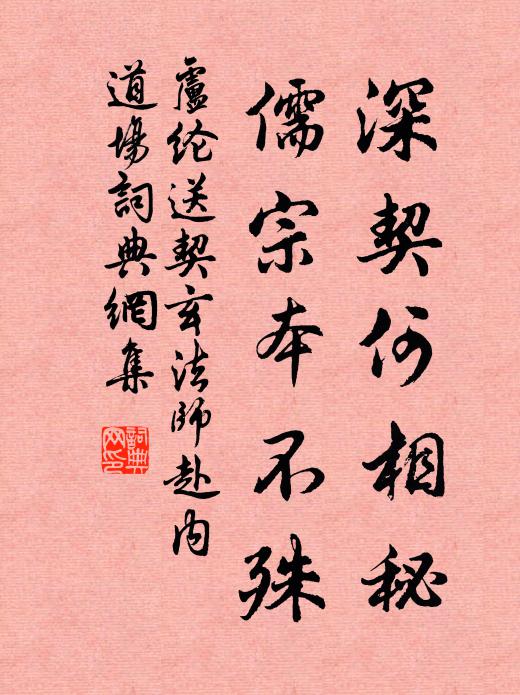 深契何相秘
儒宗本不殊
盧纶送契玄法師赴内
道場詞典網集
詞典網印